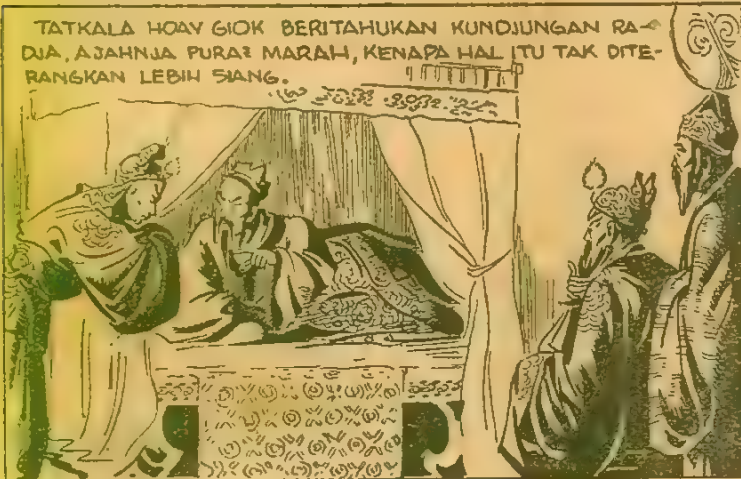 TATKALA HOAY GIOK BERITAHUKAN KUNDJUNGAN RA-
DJA, AJAHNJA PURA2 MARAH, KENAPA HAL ITU TAK DITE-
RANGKAN LEBIH SIANG.